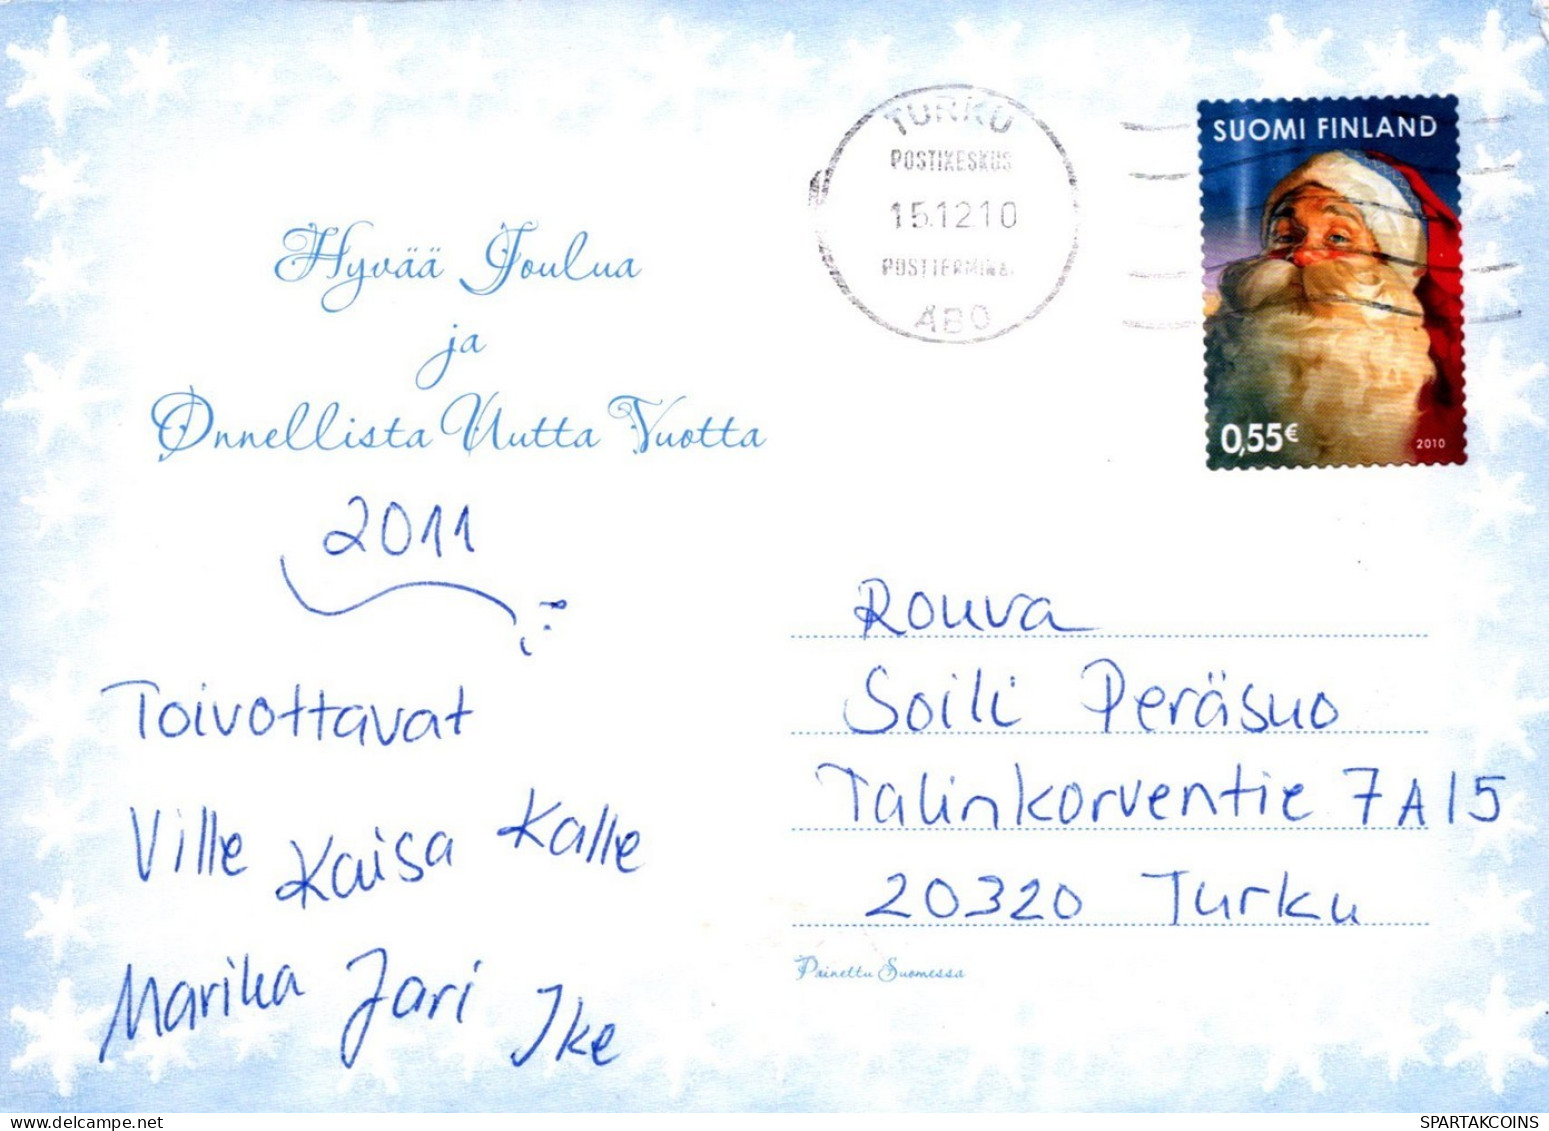 TURKU
POSTIKESKUS
15.12.10
POSTTERMINAL
ÅBO
SUOMI FINLAND
0,55€
2010
Hyvää Joulua
ja
Onnellista Uutta Vuotta
2011
Toivottavat
Ville Kaisa Kalle
Marika Jari Ike
Rouva
Soili Peräsuo
Talinkorventie 7 A 15
20320 Turku
Painettu Suomessa
SPARTAKCOINS